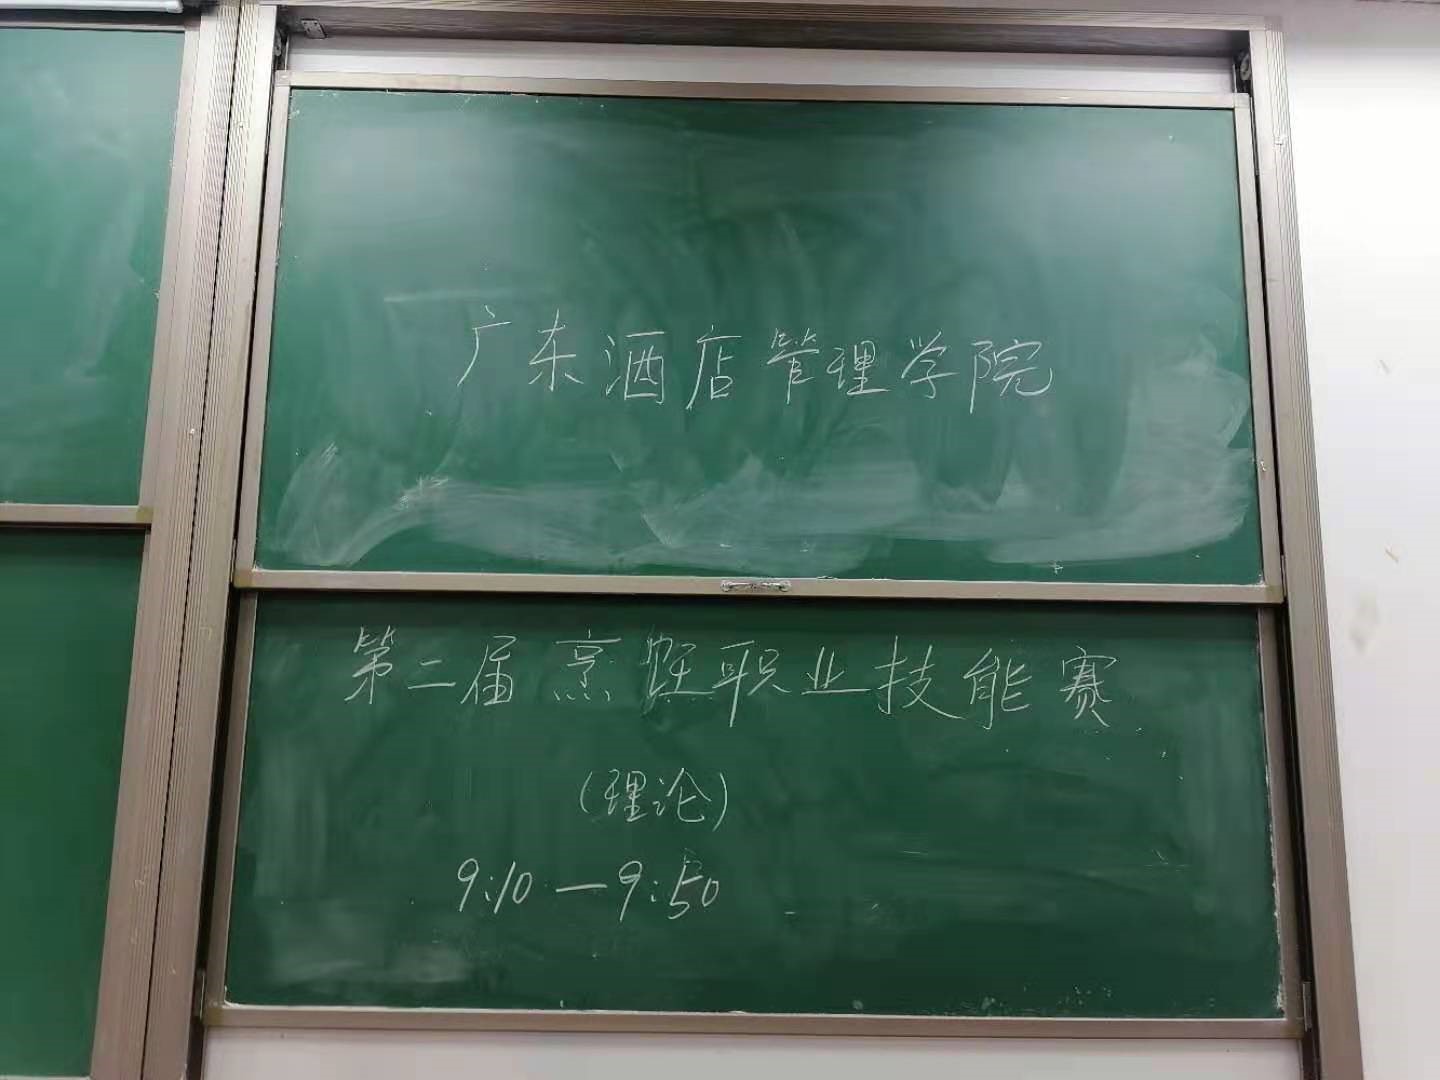 广东酒店管理学院
第二届烹饪职业技能赛
(理论)
9:10—9:50